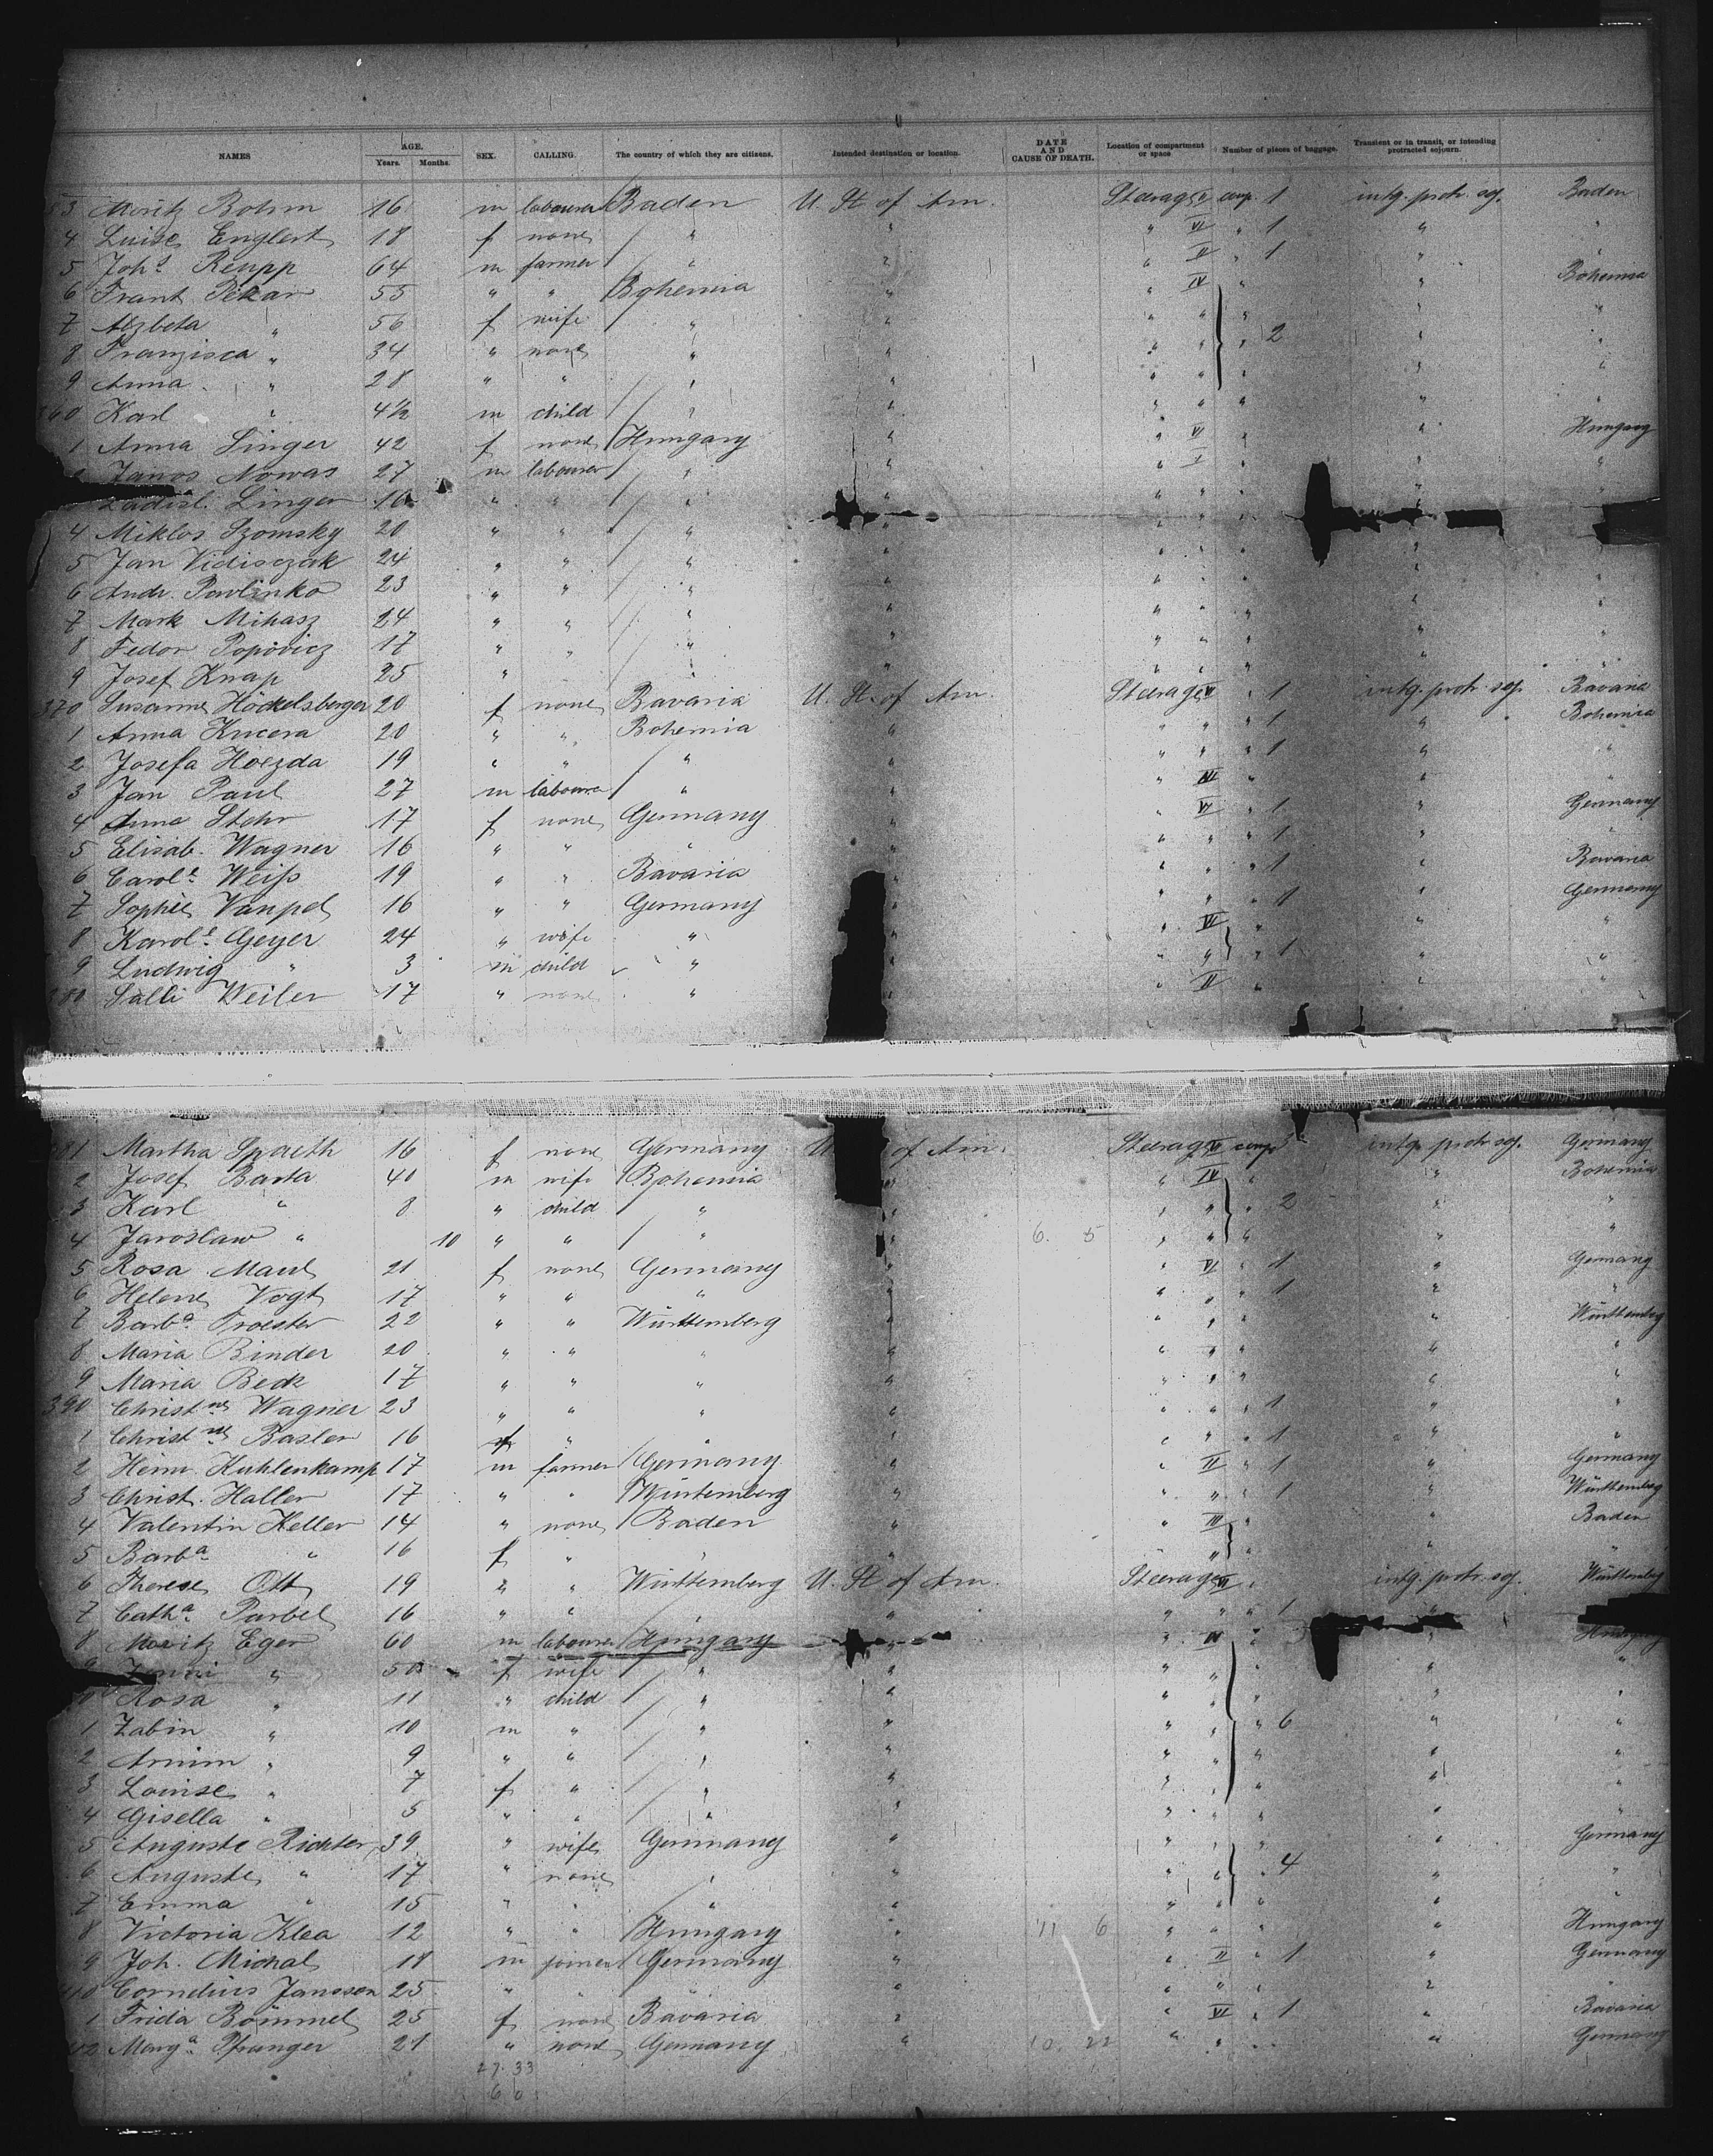 NAMES AGE. Years. Months. SEX. CALLING. The country of which they are citizens. Intended destination or location. DATE AND CAUSE OF DEATH. Location of compartment or space Number of pieces of baggage. Transient or in transit, or intending protracted sojourn.
53 Moritz Bohm 16 m labourer Baden U. St of Am. Steerage comp. 1 intg. protr. soj. Baden
4 Luise Englert 18 f none " " " VI " 1 " "
5 Joh.s Reupp 64 m farmer " " " II " 1 " "
6 Frant Pekar 55 " " Bohemia " " IV " " Bohemia
7 Alzbeta " 56 f wife " " " " " " "
8 Franzisca " 34 " none " " " " " 2 " "
9 Anna " 28 " " " " " " " " "
360 Karl " 4½ m child " " " " " " "
1 Anna Singer 42 f none Hungary " " VI " " Hungary
Janos Nowas 27 m labourer " " " I " " "
Ladisl. Singer 16 " " " " " " " " "
4 Miklos Szomsky 20 " " " " " " " "
5 Jan Vidisczak 24 " " " " " " " "
6 Andr. Pavlinko 23 " " " " " " " "
7 Mark Mihasz 24 " " " " " " " "
8 Fedor Popovicz 17 " " " " " " " "
9 Josef Knap 25 " " " " " " "
370 Susanne Höckelsberger 20 f none Bavaria U. St. of Am. Steerage VI " 1 intg. protr. soj. Bavaria
1 Anna Kucera 20 " " Bohemia " " " " 1 " Bohemia
2 Josefa Hoezda 19 " " " " " " " 1 " "
3 Jan Paul 27 m labourer " " " IV " " "
4 Anna Stehr 17 f none Germany " " VI " 1 " Germany
5 Elisab. Wagner 16 " " " " " " " 1 " "
6 Carol.e Weiß 19 " " Bavaria " " " " 1 " Bavaria
7 Sophie Vanpel 16 " " Germany " " " " 1 " Germany
8 Karol.e Geyer 24 " wife " " " VI " " "
9 Ludwig " 3 m child " " " " " 1 " "
380 Salli Weiler 17 " none " " II " " "
381 Martha Spaeth 16 f none Germany U of Am. Steerage VI comp intg. protr soj. Germany
2 Josef Barta 40 m wife Bohemia " " IV " " Bohemia
3 Karl " 8 " child " " " " " 2 " "
4 Jaroslaw " 10 " " " " 6. 5 " " " " "
5 Rosa Maul 21 f none Germany " " VI " 1 " Germany
6 Helene Vogt 17 " " " " " " " 1 " "
7 Barb.a Troester 22 " " Württemberg " " " " " Württemberg
8 Maria Binder 20 " " " " " " " " "
9 Maria Beck 17 " " " " " " " " "
390 Christ.ne Wagner 23 " " " " " " " 1 " "
1 Christ.ne Basler 16 f " " " " " " 1 " "
2 Heinr. Kuhlenkamp 17 m farmer Germany " " II " 1 " Germany
3 Christ. Haller 17 " " Württemberg " " " " 1 " Württemberg
4 Valentin Keller 14 " none Baden " " III " " Baden
5 Barb.a " 16 f " " " " " " " "
6 Therese Ott 19 " " Württemberg U. St of Am. Steerage VI " intg. protr. soj. Württemberg
7 Cath.a Parbel 16 " " " " " " " 1 "
8 Moritz Eger 60 m labourer Hungary " " IV " Hungary
9 " 50 f wife " " " " " " "
Rosa " 11 " child " " " " " " "
1 Zabin " 10 m " " " " " " 6 " "
2 Armin " 9 " " " " " " " " "
3 Louise " 7 f " " " " " " " "
4 Gisella " 5 " " " " " " " " "
5 Auguste Richter 39 " wife Germany " " " " " Germany
6 Auguste " 17 " none " " " " " 4 " "
7 Emma " 15 " " " " " " " " "
8 Victoria Klea 12 " " Hungary " 11 6 " " " " Hungary
9 Joh. Michal 18 m joiner Germany " " II " 1 " Germany
410 Cornelius Janssen 25 " " " " " " " " "
1 Frida Bömmel 25 f none Bavaria " " VI " 1 " Bavaria
412 Marg.a Pfranger 21 " none Germany " 10. 22 " " " " Germany
27. 33
60